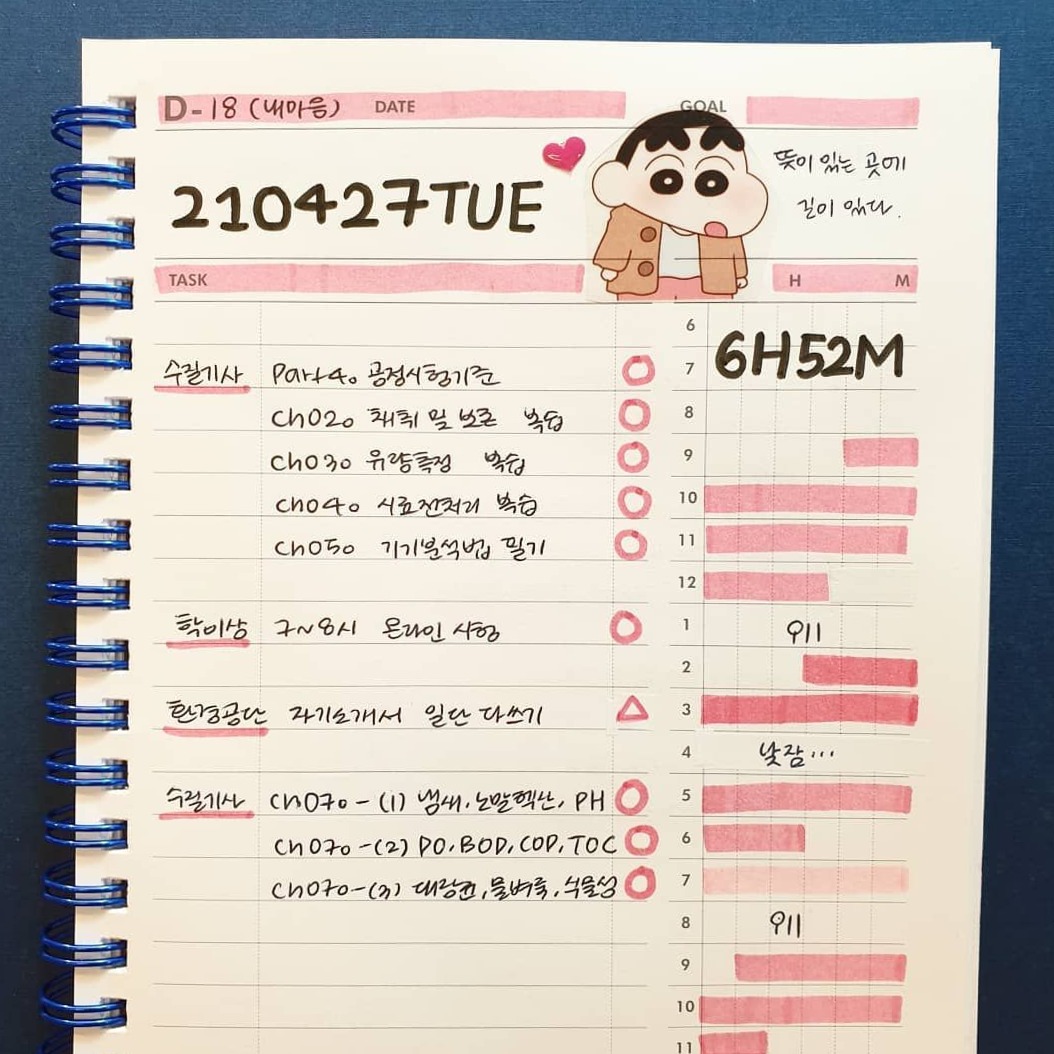 D-18 (내마음) DATE GOAL
뜻이 있는 곳에
길이 있다.
210427TUE
TASK H M
6
6H52M
수질기사 Part4. 공정시험기준 7
Ch02. 채취 및 보존 복습 8
Ch03. 유량측정 복습 9
Ch04. 시료전처리 복습 10
Ch05. 기기분석법 필기 11
12
학이상 7~8시 온라인 시험 1 911
2
환경공단 자기소개서 일단 다쓰기 3
4 낮잠...
수질기사 Ch07. - (1) 냄새, 노말헥산, PH 5
Ch07. - (2) DO, BOD, COD, TOC 6
Ch07. - (3) 대장균, 물벼룩, 식물성 7
8 911
9
10
11